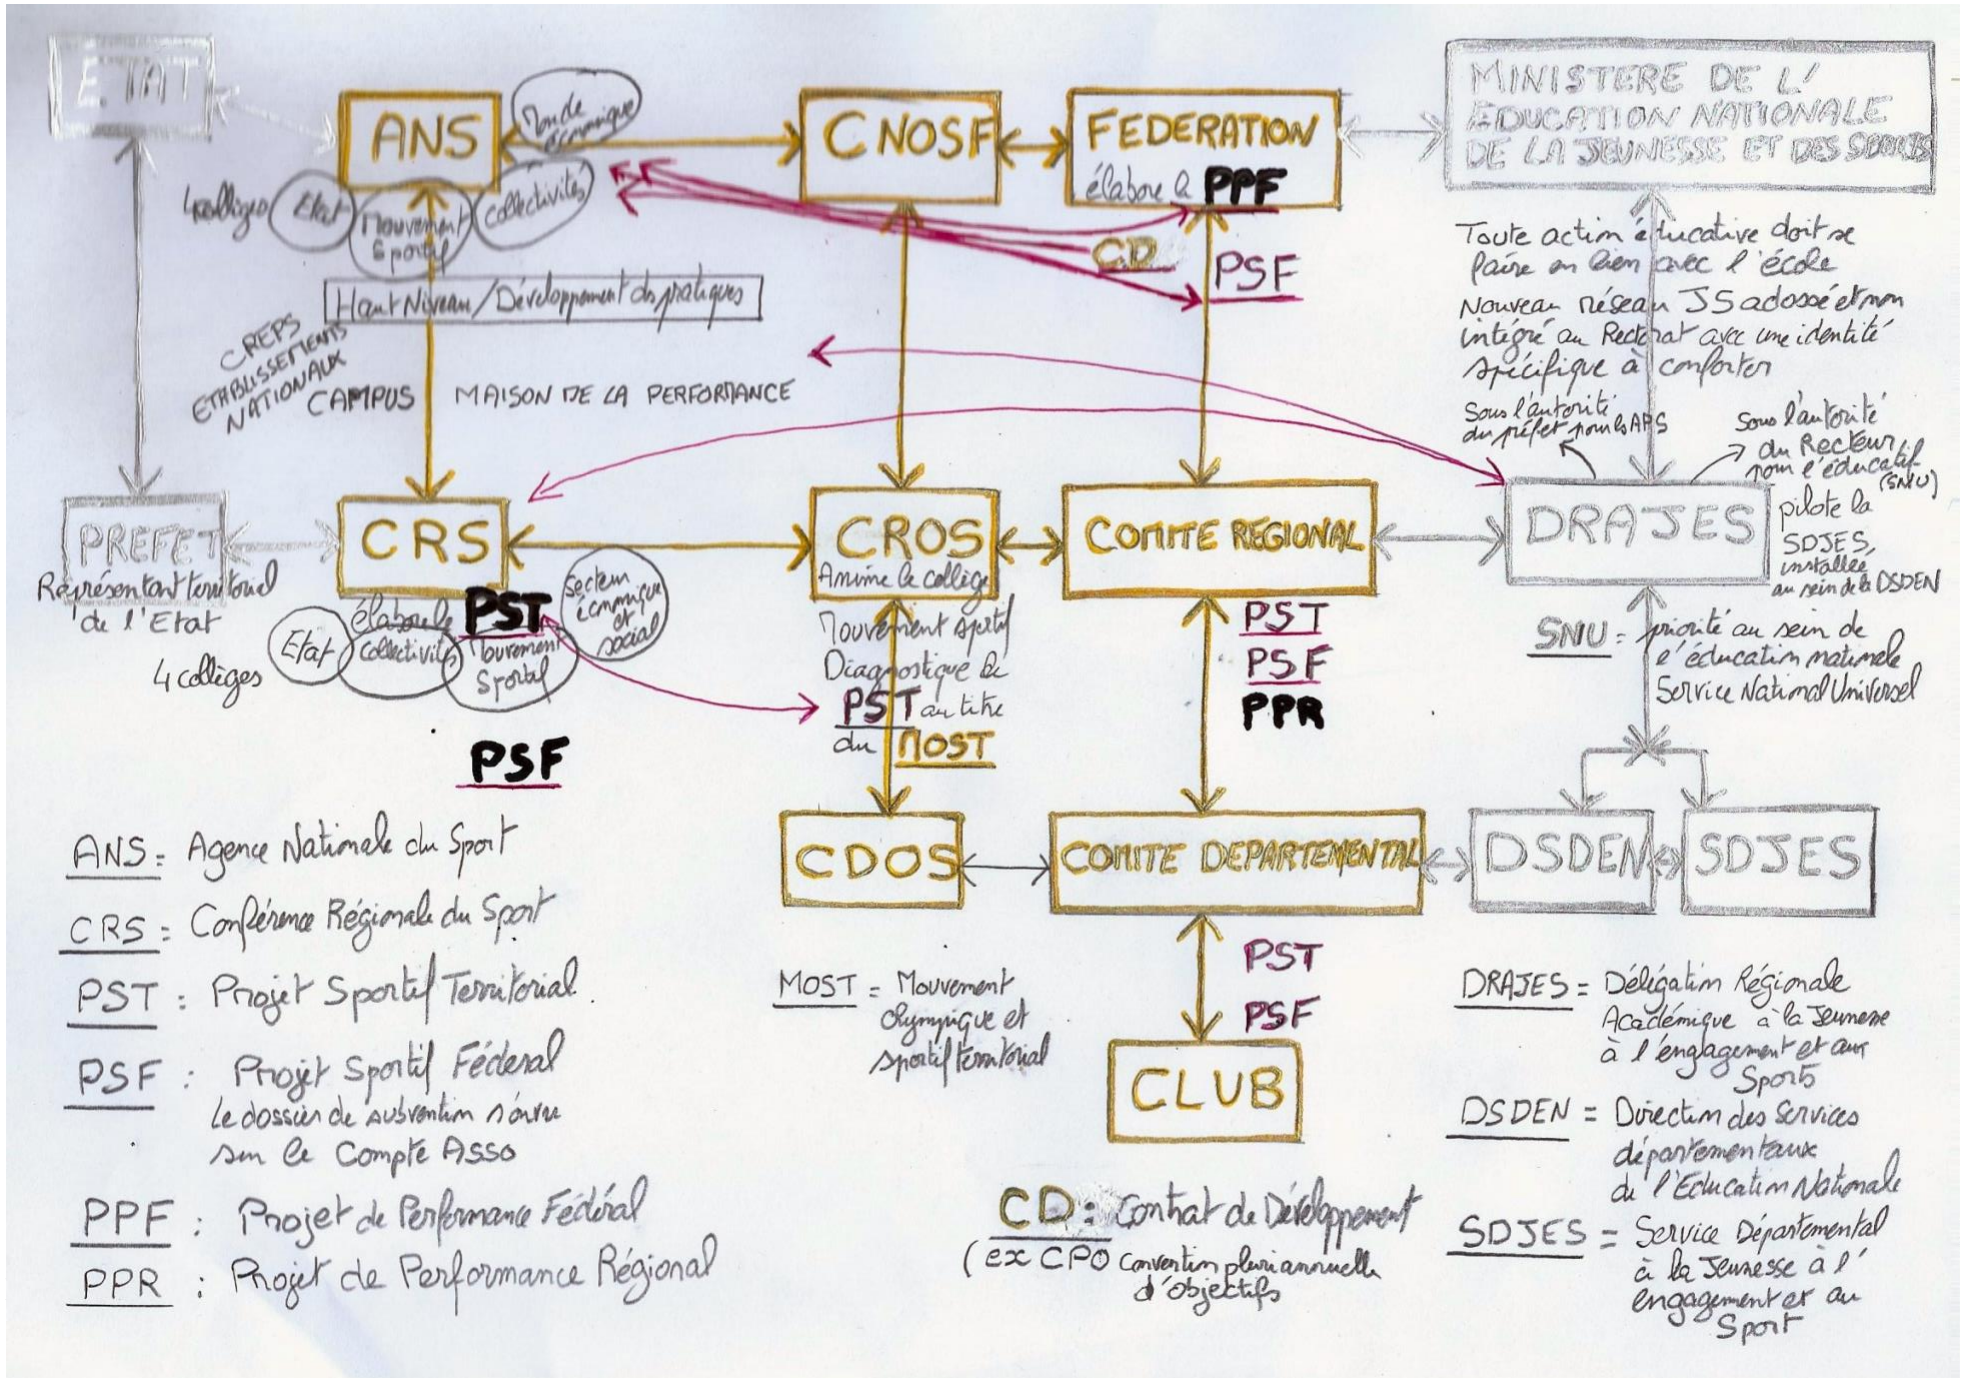 ETAT
ANS
Monde
économique
CNOSF
FEDERATION
élabore le PPF
MINISTERE DE L'
EDUCATION NATIONALE
DE LA JEUNESSE ET DES SPORTS
4 collèges
Etat
Mouvement
Sportif
Collectivités
CD
PSF
Haut Niveau/Développement des pratiques
CREPS
ETABLISSEMENTS
NATIONAUX
CAMPUS
MAISON DE LA PERFORMANCE
Toute action éducative doit se
faire en lien avec l'école
Nouveau réseau JS adossé et non
intégré au Rectorat avec une identité
spécifique à conforter
Sous l'autorité
du préfet pour les APS
Sous l'autorité
du Recteur
pour l'éducatif
(SNU)
PREFET
Représentant territorial
de l'Etat
CRS
élabore le PST
4 collèges
Etat
Collectivités
Mouvement
Sportif
Secteur
économique
et
social
PSF
CROS
Anime le collège
Mouvement sportif
Diagnostique le
PST au titre
du MOST
COMITE REGIONAL
PST
PSF
PPR
DRAJES
pilote la
SDJES,
installée
au sein de la DSDEN
SNU = priorité au sein de
l'éducation nationale
Service National Universel
CDOS
COMITE DEPARTEMENTAL
DSDEN
SDJES
PST
PSF
CLUB
ANS = Agence Nationale du Sport
CRS = Conférence Régionale du Sport
PST : Projet Sportif Territorial
PSF : Projet Sportif Féderal
Le dossier de subvention s'ouvre
sur le Compte Asso
PPF : Projet de Performance Fédéral
PPR : Projet de Performance Régional
MOST = Mouvement
Olympique et
sportif territorial
CD : Contrat de Développement
(ex CPO Convention pluriannuelle
d'objectifs
DRAJES = Délégation Régionale
Académique à la Jeunesse
à l'engagement et aux
Sports
DSDEN = Direction des Services
départementaux
de l'Education Nationale
SDJES = Service Départemental
à la Jeunesse à l'
engagement et au
Sport